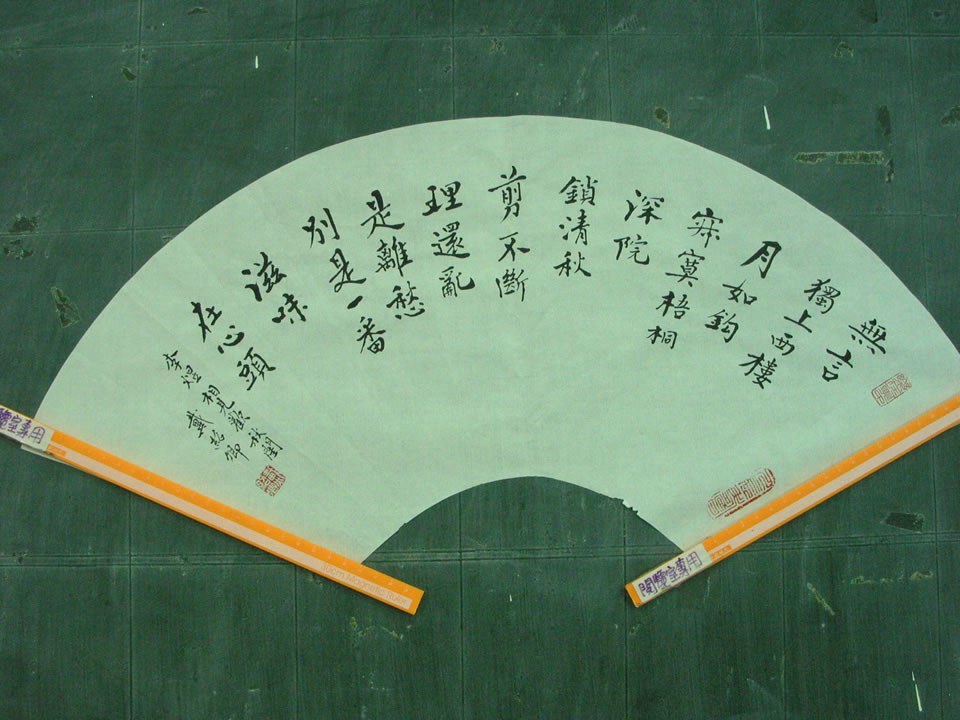 無言
獨上西樓
月如鈎
寂寞梧桐
深院
鎖清秋
剪不斷
理還亂
是離愁
別是一番
滋味
在心頭
李煜 相見歡 秋閨
戴 卿
覽室專用
Magnetic Ruler
閱覽室專用